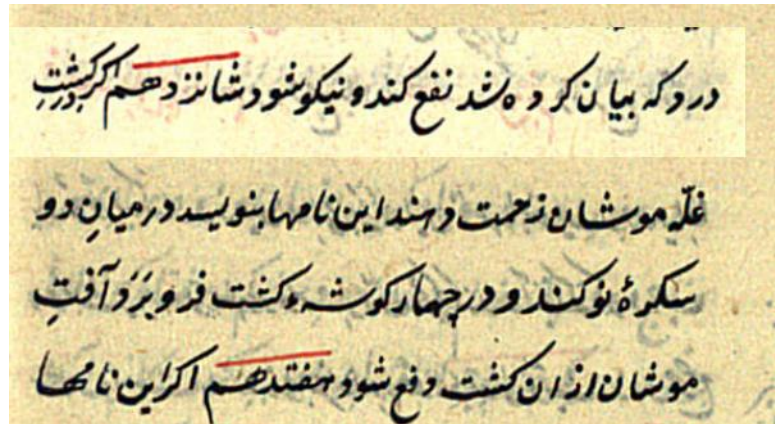 درد که بیان کرده شد نفع کند و نیکو شود شانزدهم اکر در کِشتِ
غلّه موشان زحمت دهند این نامها بنویسد در میانِ دو
سکرهٔ نو کند و در چهار کوشهء کشت فرو بَرَد آفتِ
موشان از ان کشت دفع شود هفتدهم اکر این نامها